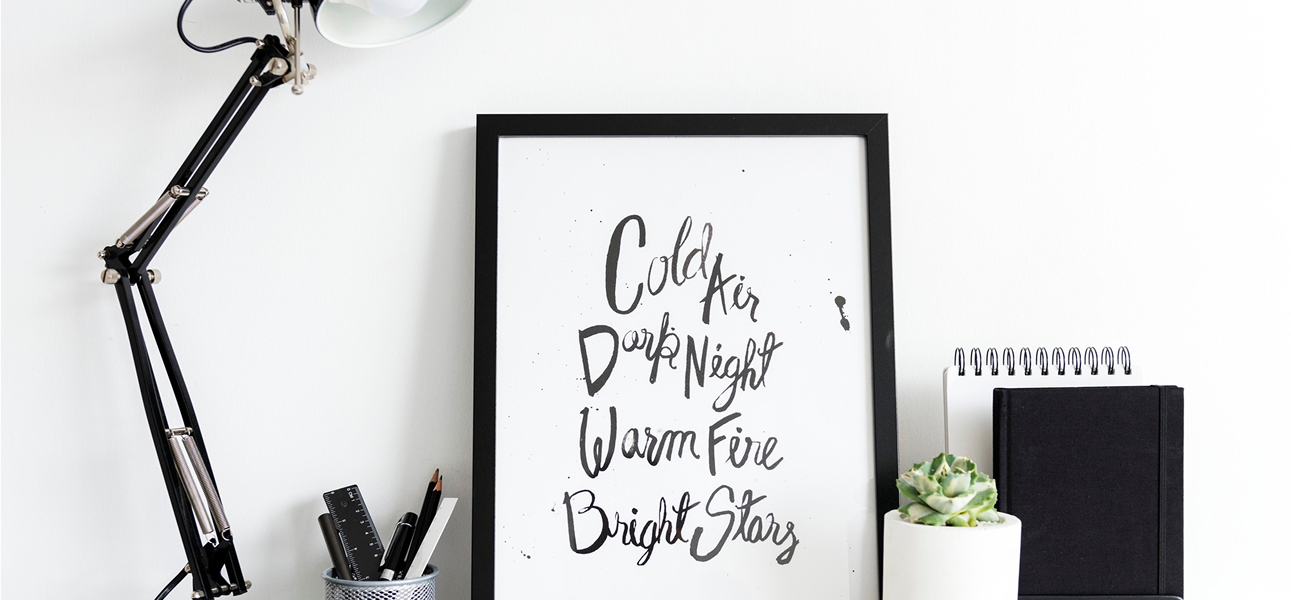 Cold Air
Dark Night
Warm Fire
Bright Stars